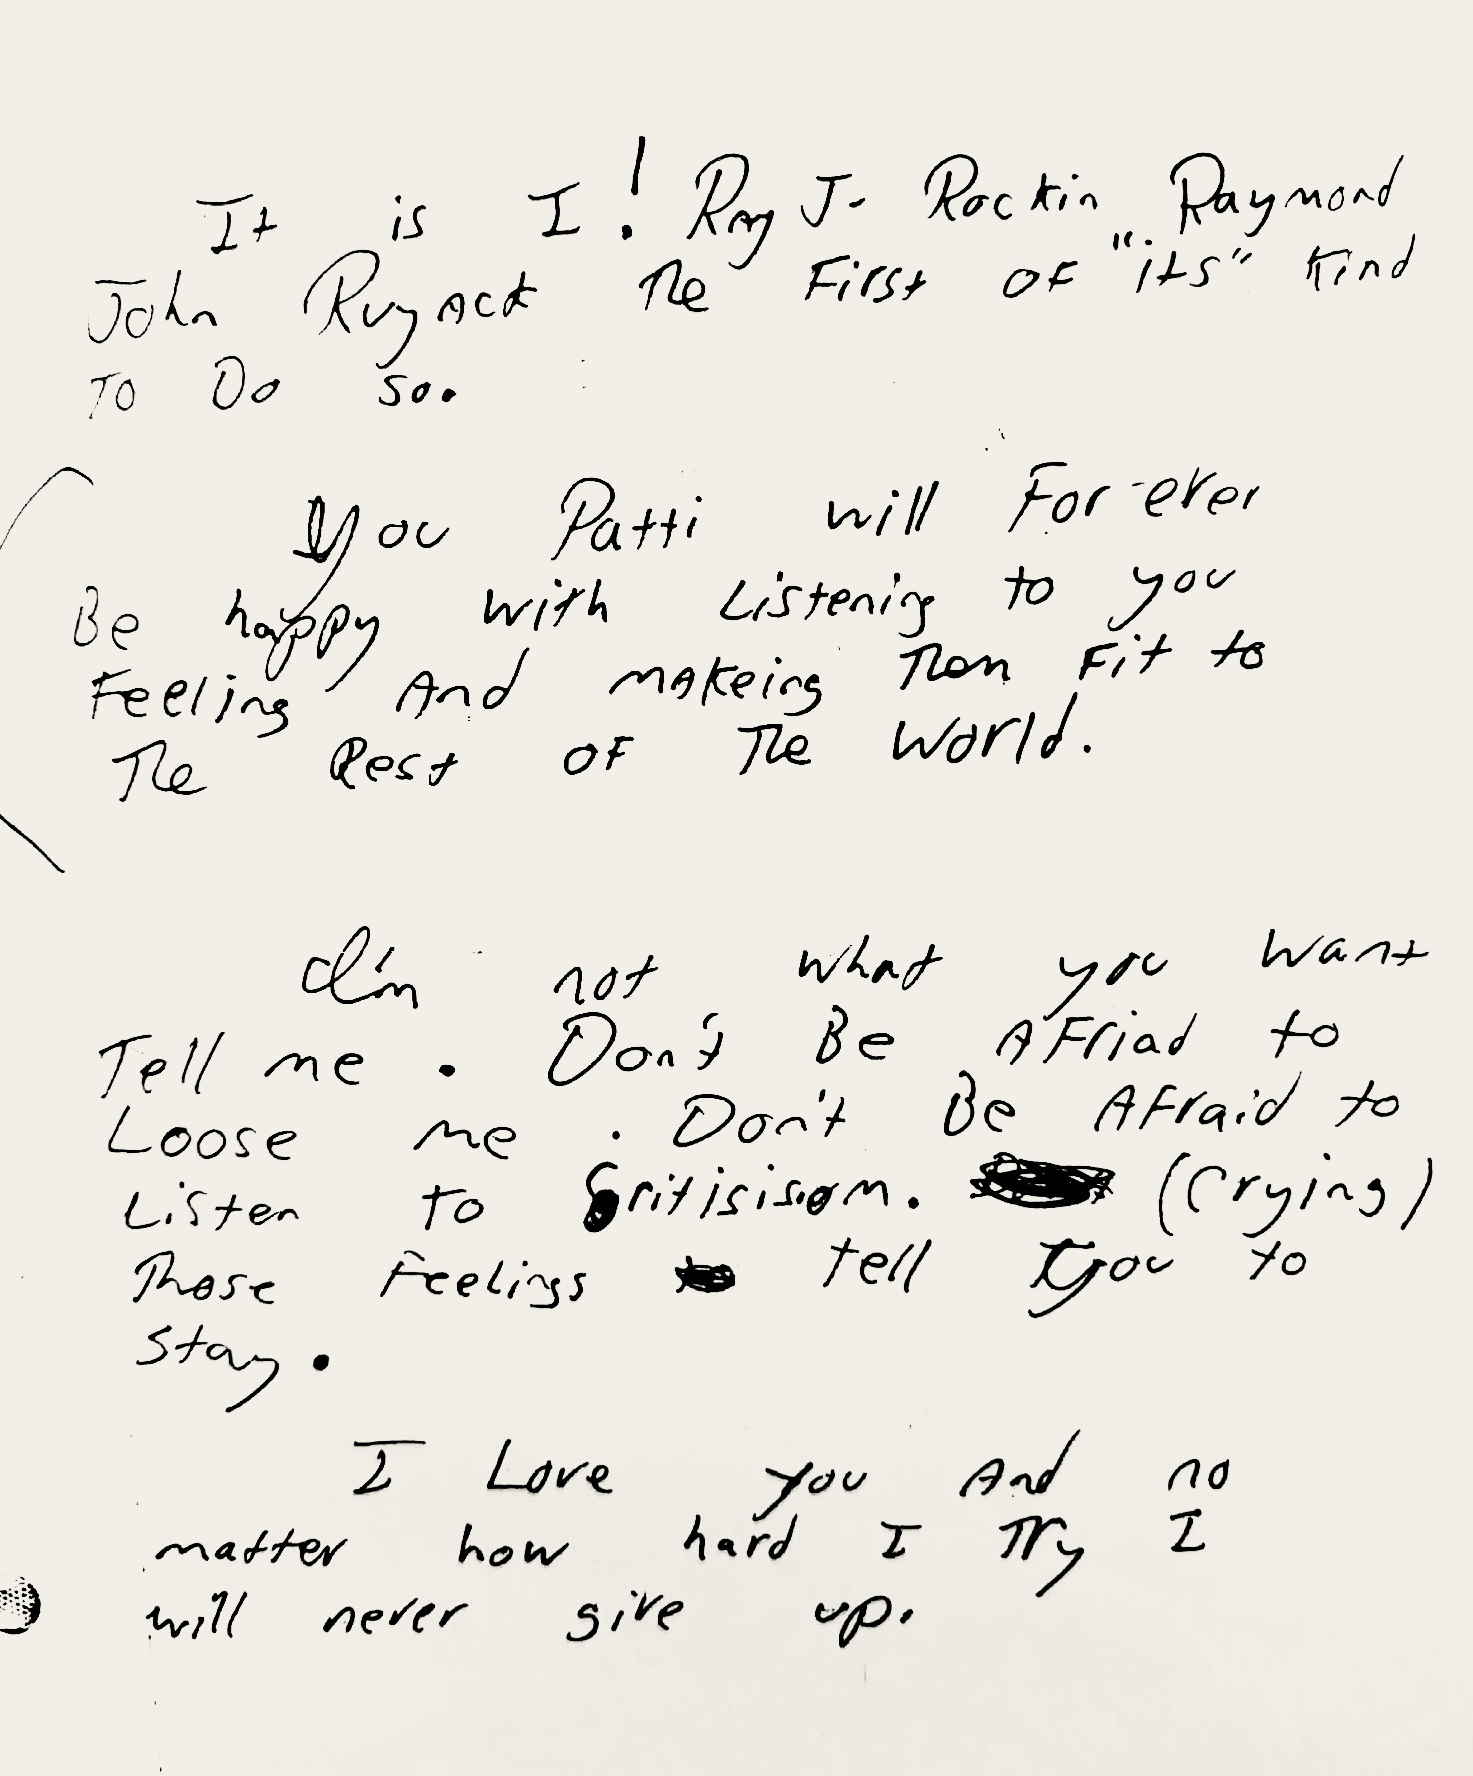 It is I! Ray J- Rockin Raymond
John Ruyack The First of "its" Kind
To Do so.
You Patti will For-ever
Be happy with Listening to you
Feeling And makeing Them Fit to
The Rest of The World.
I'm not what you want
Tell me. Don't Be AFriad to
Loose me. Don't Be AFraid to
Listen To Critisisom. (Crying)
Those Feelings tell you to
stay.
I Love you And no
matter how hard I Try I
will never give up.